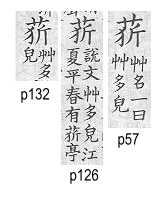 艸多
皃
p132
說文艸多皃江
夏平春有亭
p126
艸名一曰
艸多皃
p57